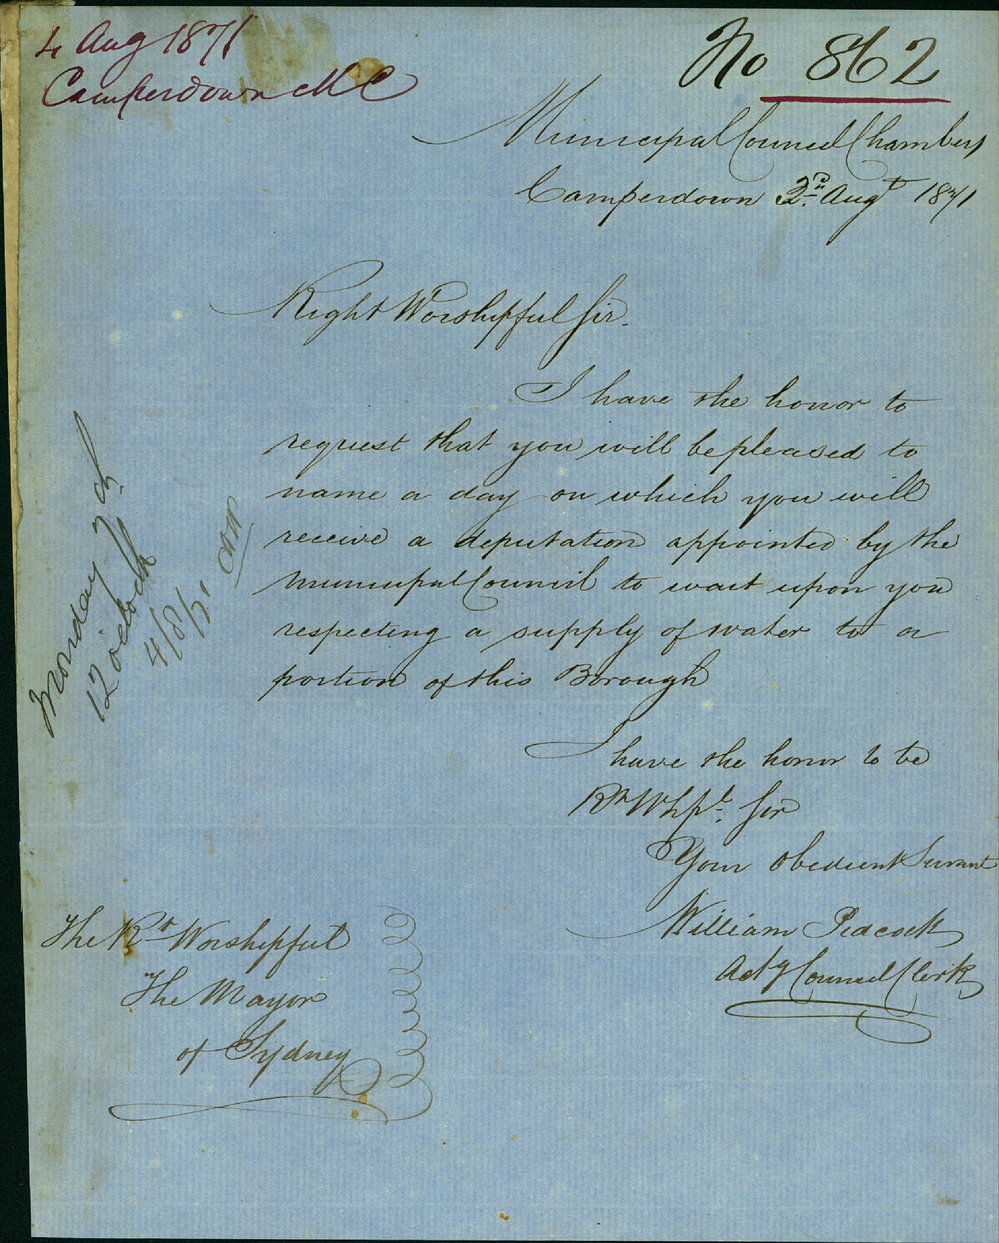 4 Aug 1871
Camperdown M C
No 862
Municipal Council Chambers
Camperdown 2nd Augt 1871
Right Worshipful Sir.
I have the honor to
request that you will be pleased to
name a day on which you will
receive a deputation appointed by the
Municipal Council to wait upon you
respecting a supply of water to a
portion of this Borough
I have the honor to be
Rt Whpl. Sir
Your obedient Servant
William Peacock
Actg Council Clerk
The Rt Worshipful
The Mayor
of Sydney
Monday 7th
12 o'clock
4/8/71